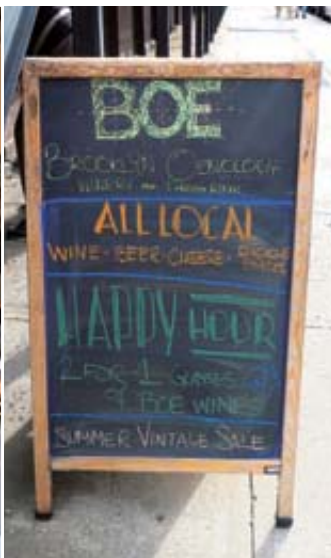 BOE
BROOKLYN OENOLOGY
WINERY
ALL LOCAL
WINE • BEER • CHEESE •
HAPPY HOUR
2 FOR 1 GLASSES
BOE WINES
SUMMER VINTAGE SALE